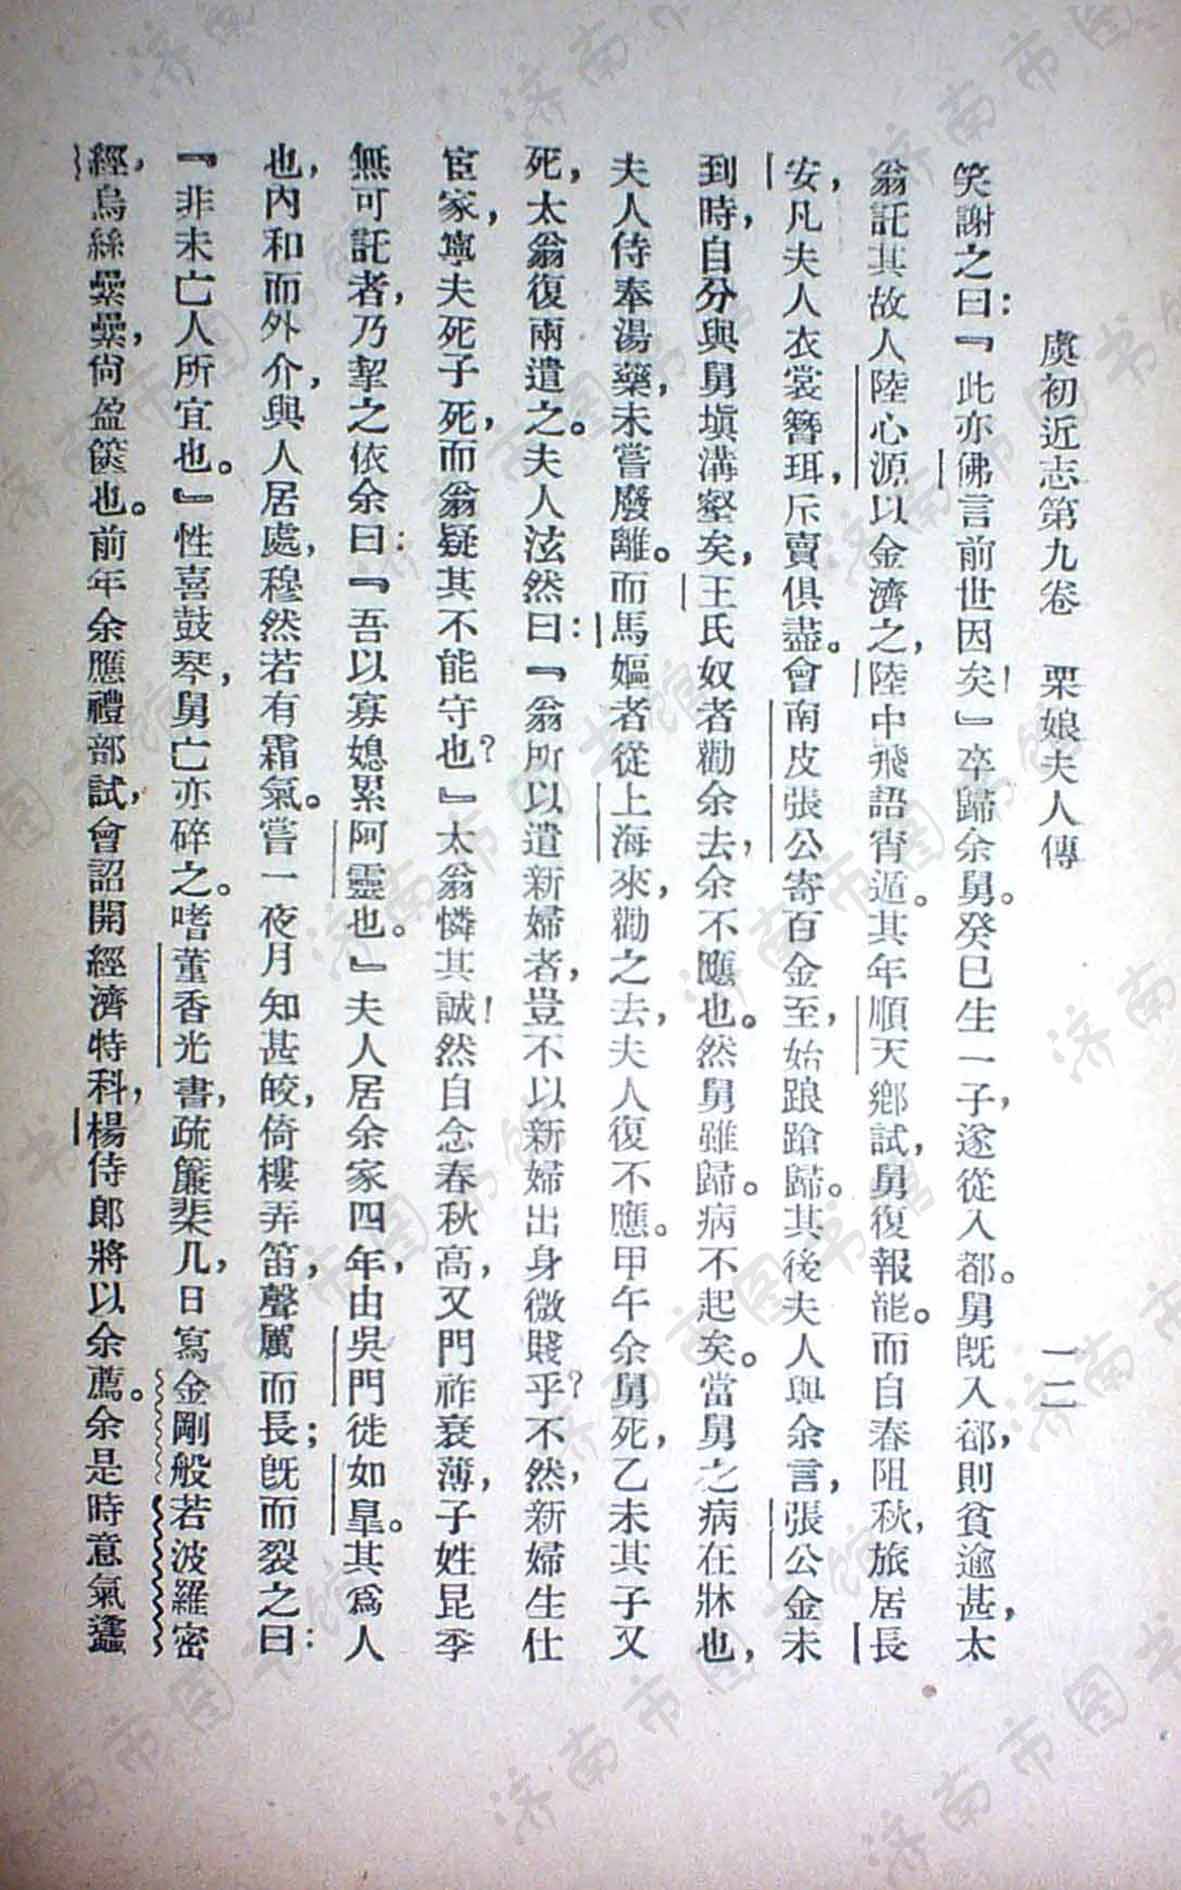 虞初近志第九卷　栗娘夫人傳　一二
笑謝之曰：『此亦佛言前世因矣！』卒歸余舅。癸巳生一子，遂從入都。舅既入都，則貧逾甚，太
翁託其故人陸心源以金濟之，陸中飛語宵遁。其年順天鄉試，舅復報罷。而自春阻秋，旅居長
安，凡夫人衣裳簪珥，斥賣俱盡。會南皮張公寄百金至，始踉蹌歸。其後夫人與余言，張公金未
到時，自分與舅塡溝壑矣，王氏奴者勸余去，余不應也。然舅雖歸。病不起矣。當舅之病在牀也，
夫人侍奉湯藥，未嘗廢離。而馬嫗者從上海來，勸之去，夫人復不應。甲午余舅死，乙未其子又
死，太翁復兩遣之。夫人泫然曰：『翁所以遣新婦者，豈不以新婦出身微賤乎？不然，新婦生仕
宦家，寧夫死子死，而翁疑其不能守也？』太翁憐其誠！然自念春秋高，又門祚衰薄，子姓昆季
無可託者，乃挈之依余曰：『吾以寡媳累阿靈也。』夫人居余家四年，由吳門徙如臯。其爲人
也，內和而外介，與人居處，穆然若有霜氣。嘗一夜月知甚皎，倚樓弄笛，聲厲而長；旣而裂之曰：
『非未亡人所宜也。』性喜鼓琴，舅亡亦碎之。嗜董香光書，疏簾棐几，日寫金剛般若波羅密
經，烏絲纍纍，尙盈篋也。前年余應禮部試，會詔開經濟特科，楊侍郎將以余薦。余是時意氣蠭